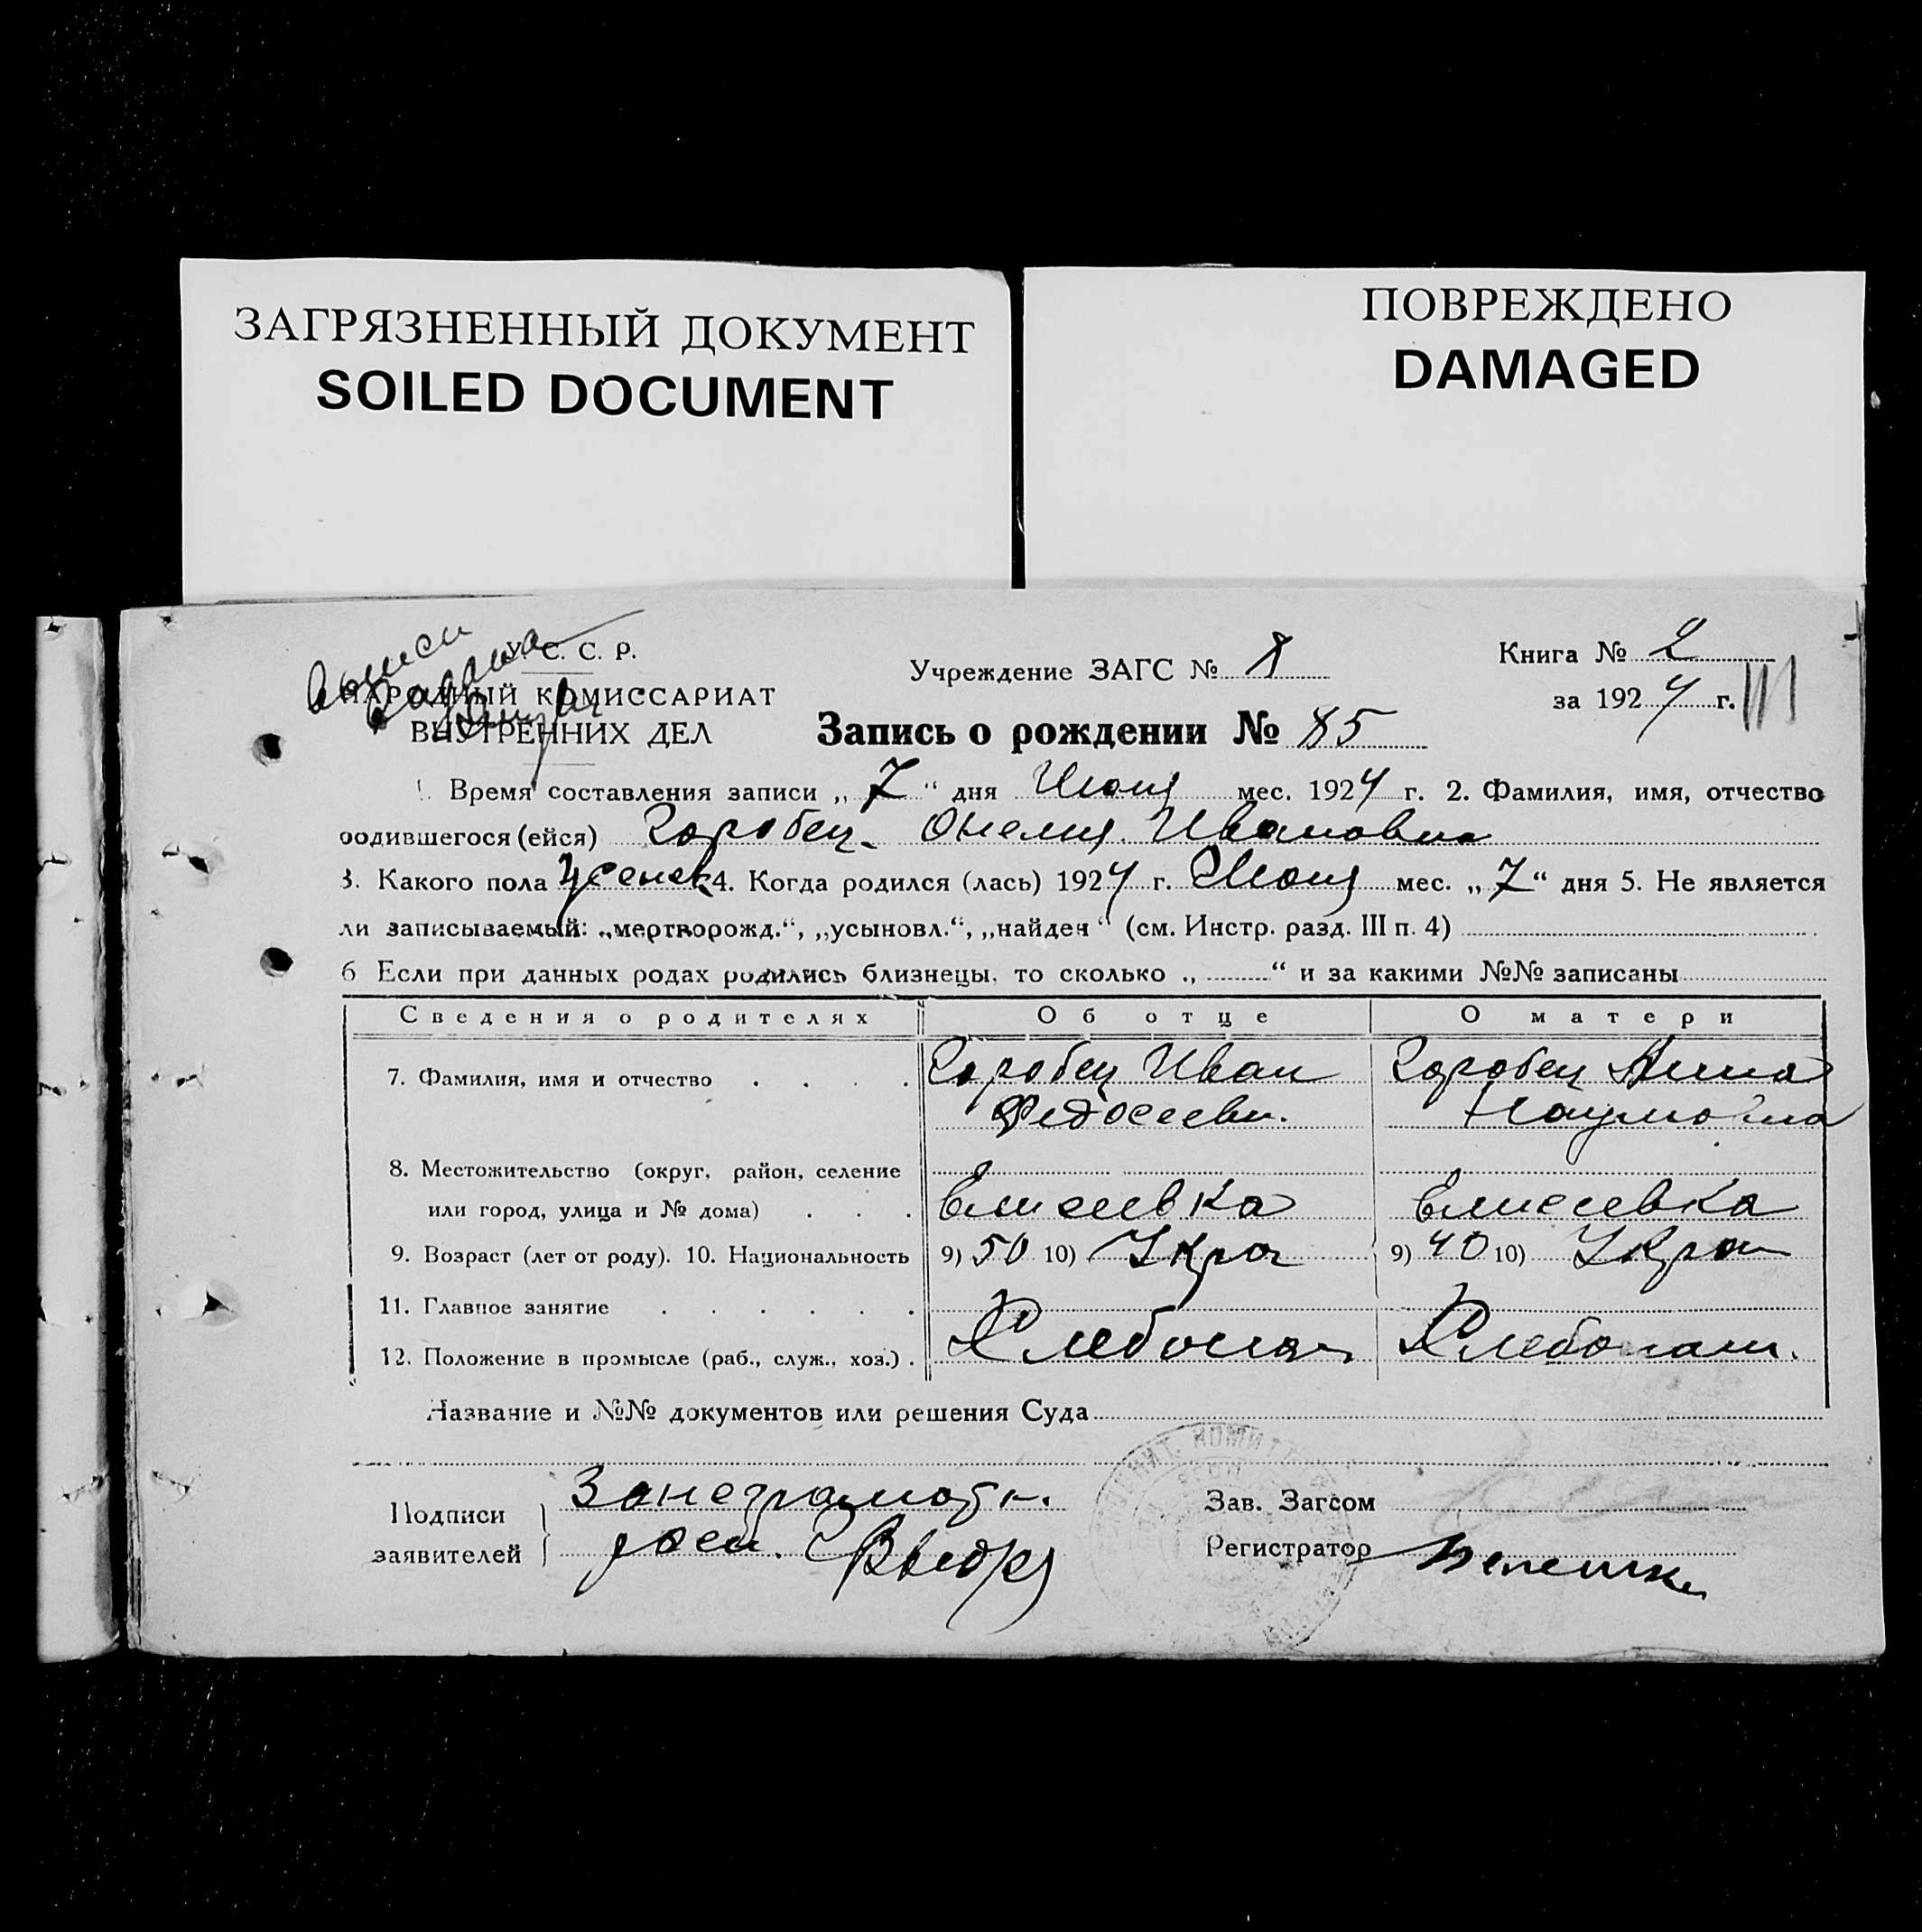 ЗАГРЯЗНЕННЫЙ ДОКУМЕНТ
SOILED DOCUMENT
ПОВРЕЖДЕНО
DAMAGED
У. С. С. Р.
НАРОДНЫЙ КОМИССАРИАТ
ВНУТРЕННИХ ДЕЛ
Учреждение ЗАГС № 8
Книга № 2
за 1924 г.
Запись о рождении № 85
1. Время составления записи „ 7 “ дня Июня мес. 1924 г. 2. Фамилия, имя, отчество
родившегося (ейся) Горобец Онелия Ивановна
3. Какого пола Женск 4. Когда родился (лась) 1924 г. Июня мес. „ 7 “ дня 5. Не является
ли записываемый: „мертворожд.“, „усыновл.“, „найден“ (см. Инстр. разд. III п. 4)
6 Если при данных родах родились близнецы, то сколько „ “ и за какими №№ записаны
Сведения о родителях Об отце О матери
7. Фамилия, имя и отчество Горобец Иван Горобец Анна
Федосеевич. Наумовна
8. Местожительство (округ, район, селение
или город, улица и № дома) Елисеевка Елисеевка
9. Возраст (лет от роду). 10. Национальность 9) 50 10) Укра 9) 40 10) Укра
11. Главное занятие
12. Положение в промысле (раб., служ., хоз.) Хлебопаш Хлебопаш.
Название и №№ документов или решения Суда
Подписи
заявителей
За неграмотн.
Зав. Загсом
Регистратор